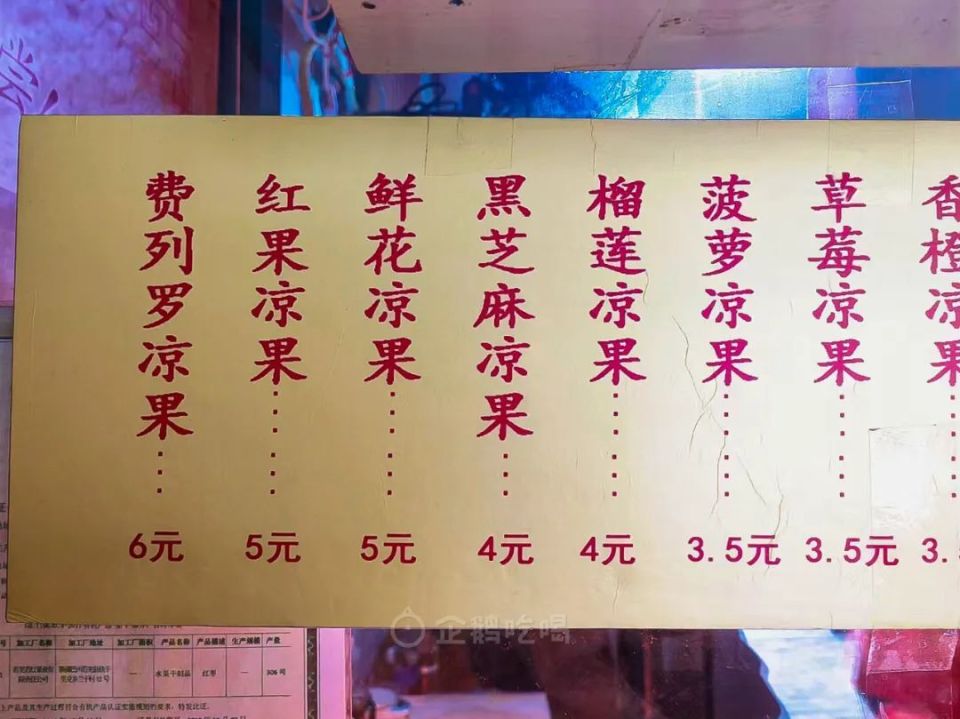 费列罗凉果……6元
红果凉果……5元
鲜花凉果……5元
黑芝麻凉果……4元
榴莲凉果……4元
菠萝凉果……3.5元
草莓凉果……3.5元
香橙凉果
3.5
企鹅吃喝
加工厂名称 加工厂地址 加工厂面积 产品名称 产品描述 生产规模 产量
水果干制品 红枣 — 306